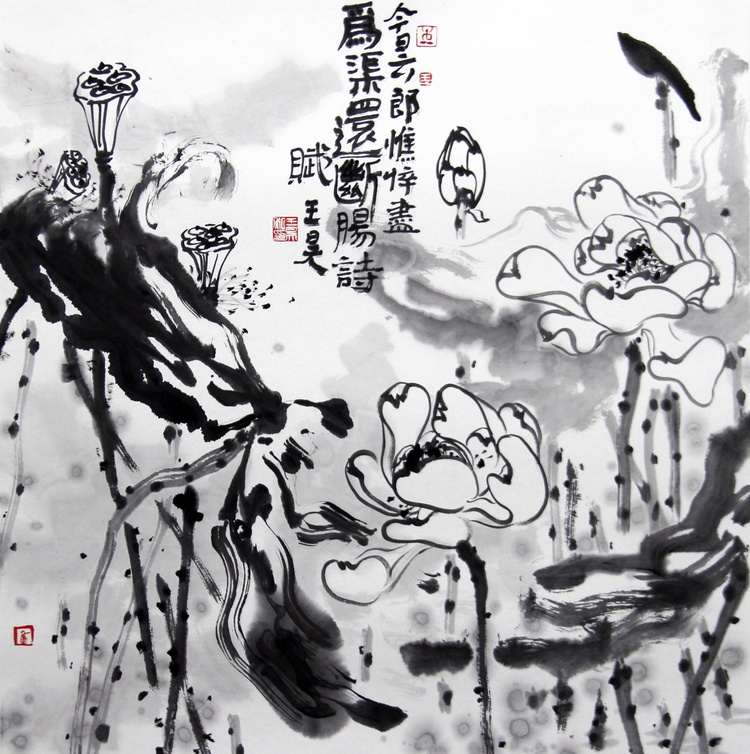 今日六郎憔悴盡
爲渠還斷腸詩
賦
王昊